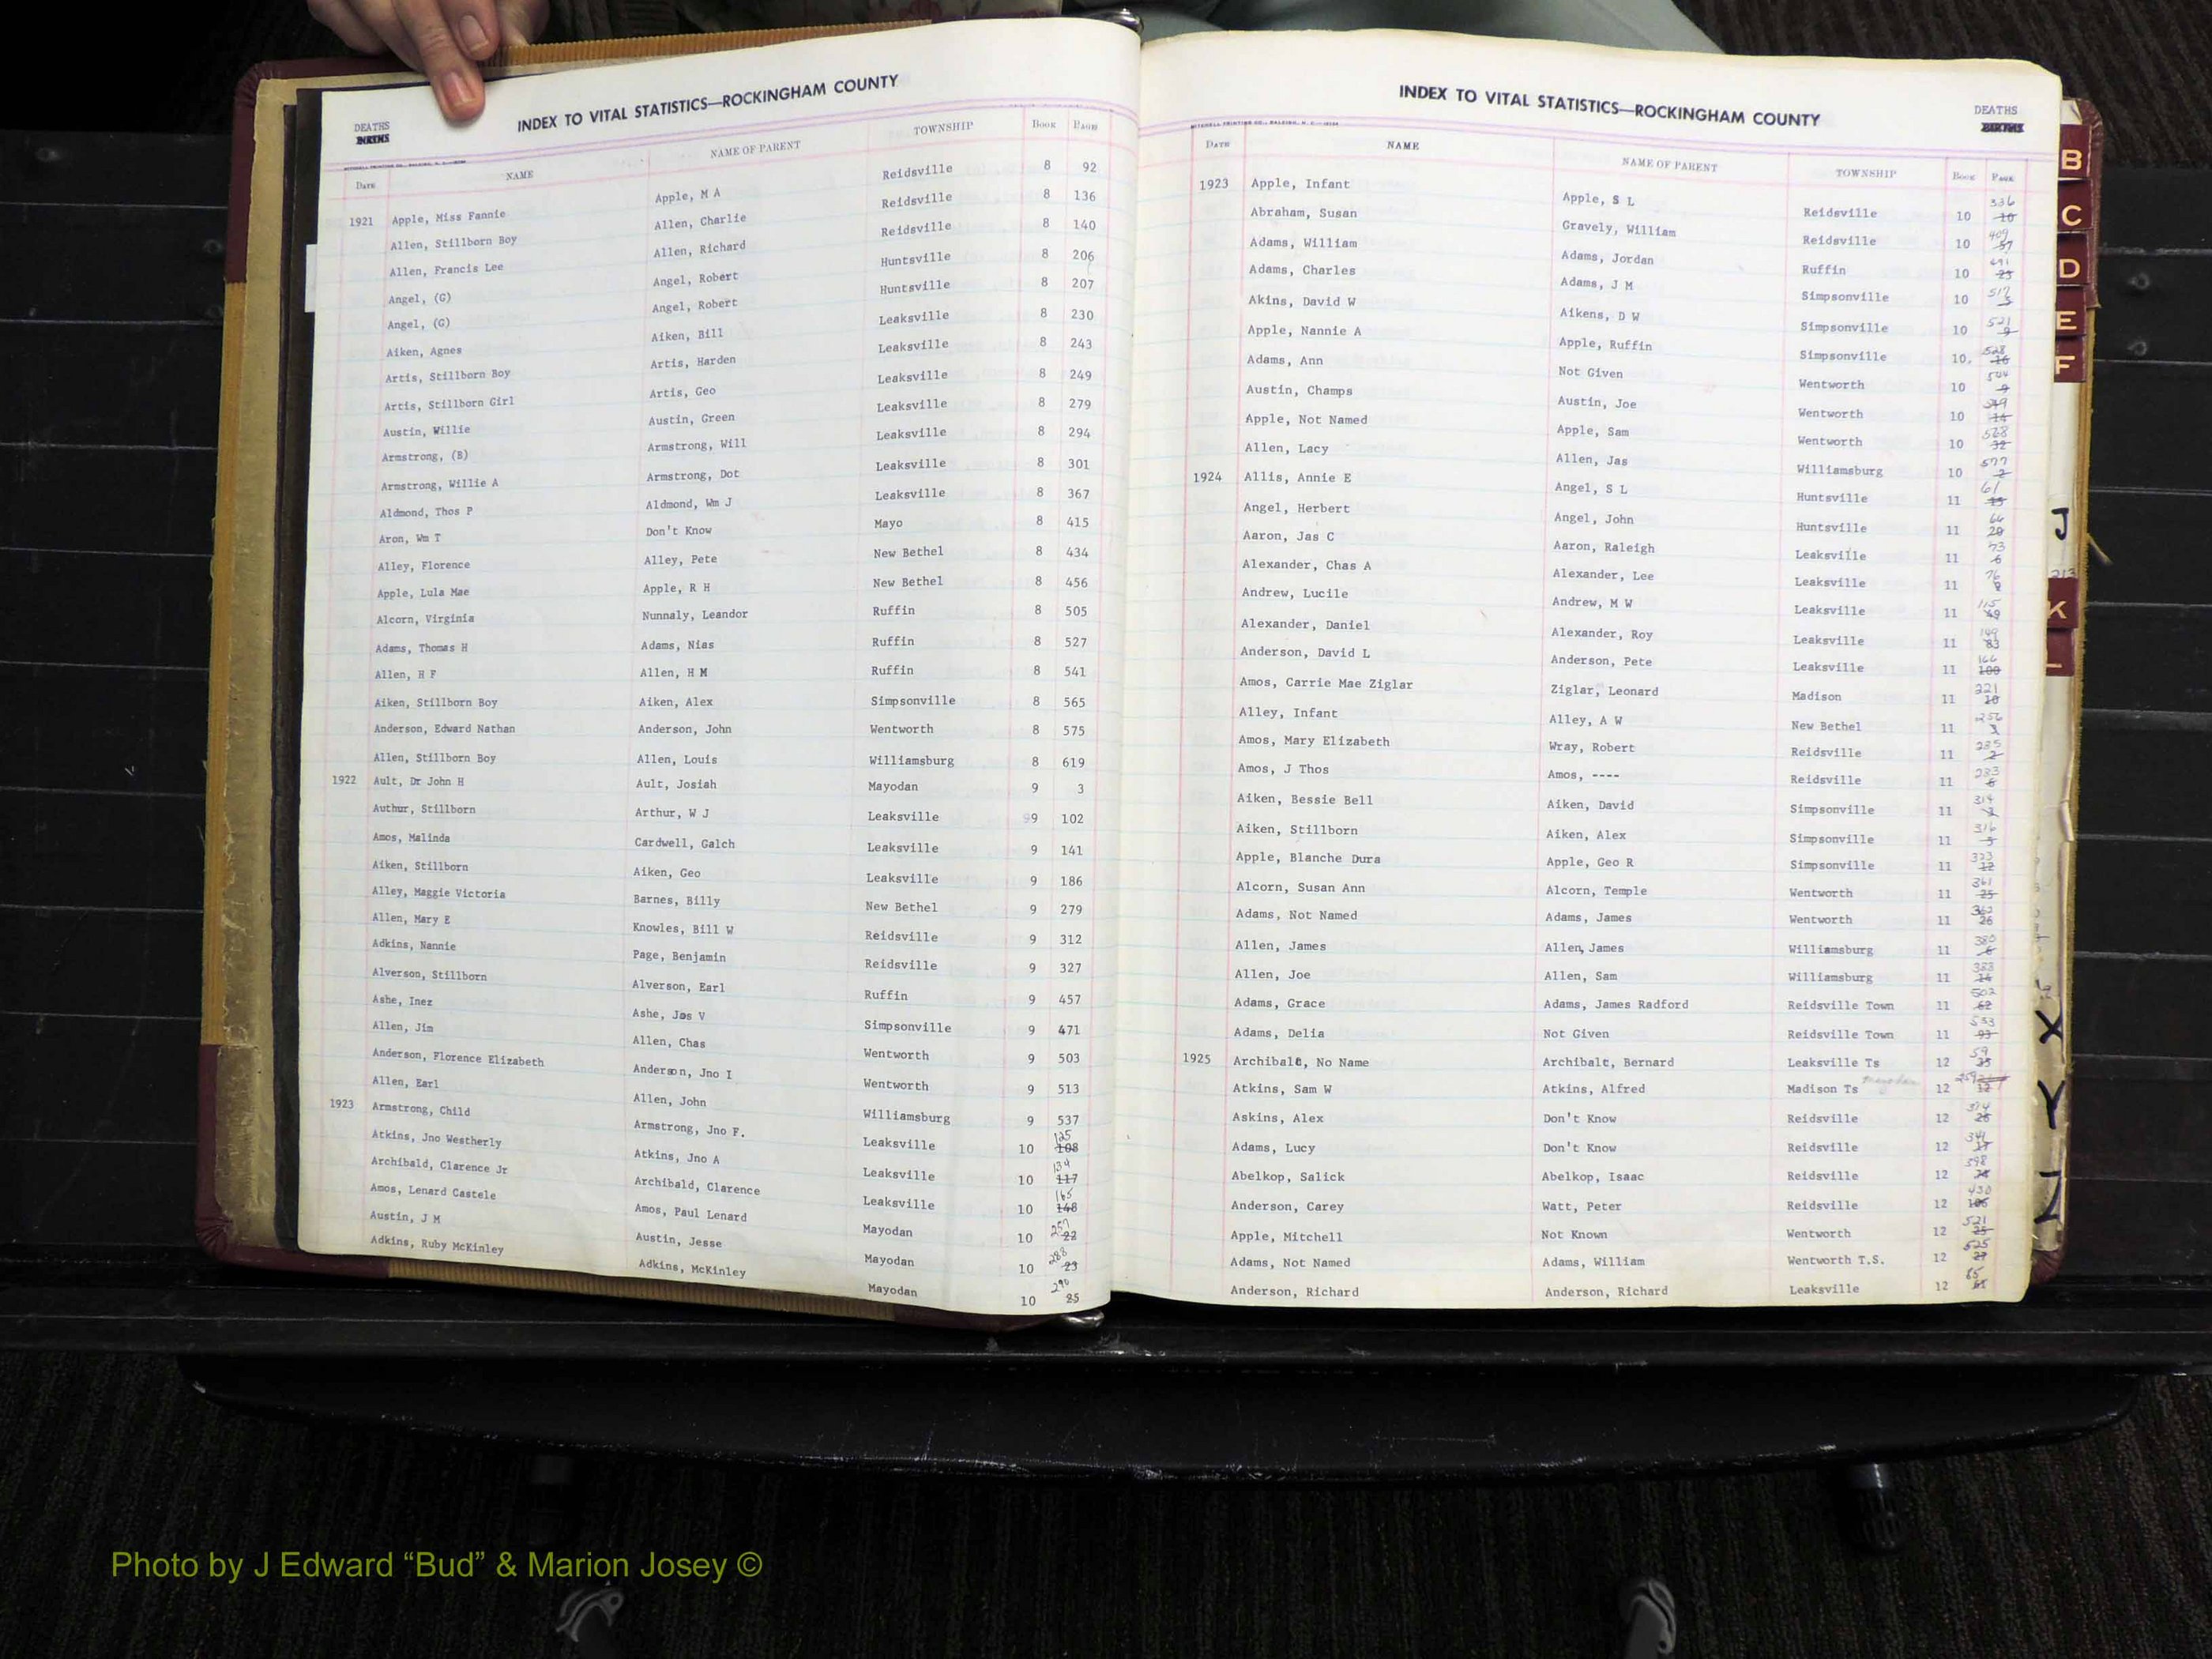 INDEX TO VITAL STATISTICS—ROCKINGHAM COUNTY
DEATHS
BIRTHS
Date NAME NAME OF PARENT TOWNSHIP Book Page
1921 Apple, Miss Fannie Apple, M A Reidsville 8 92
Allen, Stillborn Boy Allen, Charlie Reidsville 8 136
Allen, Francis Lee Allen, Richard Reidsville 8 140
Angel, (G) Angel, Robert Huntsville 8 206
Angel, (G) Angel, Robert Huntsville 8 207
Aiken, Agnes Aiken, Bill Leaksville 8 230
Artis, Stillborn Boy Artis, Harden Leaksville 8 243
Artis, Stillborn Girl Artis, Geo Leaksville 8 249
Austin, Willie Austin, Green Leaksville 8 279
Armstrong, (B) Armstrong, Will Leaksville 8 294
Armstrong, Willie A Armstrong, Dot Leaksville 8 301
Aldmond, Thos P Aldmond, Wm J Leaksville 8 367
Aron, Wm T Don't Know Mayo 8 415
Alley, Florence Alley, Pete New Bethel 8 434
Apple, Lula Mae Apple, R H New Bethel 8 456
Alcorn, Virginia Nunnaly, Leandor Ruffin 8 505
Adams, Thomas H Adams, Nias Ruffin 8 527
Allen, H F Allen, H M Ruffin 8 541
Aiken, Stillborn Boy Aiken, Alex Simpsonville 8 565
Anderson, Edward Nathan Anderson, John Wentworth 8 575
Allen, Stillborn Boy Allen, Louis Williamsburg 8 619
1922 Ault, Dr John H Ault, Josiah Mayodan 9 3
Authur, Stillborn Arthur, W J Leaksville 99 102
Amos, Malinda Cardwell, Galch Leaksville 9 141
Aiken, Stillborn Aiken, Geo Leaksville 9 186
Alley, Maggie Victoria Barnes, Billy New Bethel 9 279
Allen, Mary E Knowles, Bill W Reidsville 9 312
Adkins, Nannie Page, Benjamin Reidsville 9 327
Alverson, Stillborn Alverson, Earl Ruffin 9 457
Ashe, Inez Ashe, Jos V Simpsonville 9 471
Allen, Jim Allen, Chas Wentworth 9 503
Anderson, Florence Elizabeth Anderson, Jno I Wentworth 9 513
Allen, Earl Allen, John Williamsburg 9 537
1923 Armstrong, Child Armstrong, Jno F. Leaksville 10 125 108
Atkins, Jno Westherly Atkins, Jno A Leaksville 10 134 117
Archibald, Clarence Jr Archibald, Clarence Leaksville 10 165 148
Amos, Lenard Castele Amos, Paul Lenard Mayodan 10 257 22
Austin, J M Austin, Jesse Mayodan 10 288 23
Adkins, Ruby McKinley Adkins, McKinley Mayodan 10 290 25
INDEX TO VITAL STATISTICS—ROCKINGHAM COUNTY
DEATHS
BIRTHS
Date NAME NAME OF PARENT TOWNSHIP Book Page
1923 Apple, Infant Apple, S L Reidsville 10 336 10
Abraham, Susan Gravely, William Reidsville 10 409 57
Adams, William Adams, Jordan Ruffin 10 491 25
Adams, Charles Adams, J M Simpsonville 10 517
Akins, David W Aikens, D W Simpsonville 10 521 9
Apple, Nannie A Apple, Ruffin Simpsonville 10 528 16
Adams, Ann Not Given Wentworth 10 544 9
Austin, Champs Austin, Joe Wentworth 10 549 14
Apple, Not Named Apple, Sam Wentworth 10 568 32
Allen, Lacy Allen, Jas Williamsburg 10 577 2
1924 Allis, Annie E Angel, S L Huntsville 11 61 15
Angel, Herbert Angel, John Huntsville 11 66 20
Aaron, Jas C Aaron, Raleigh Leaksville 11 73 6
Alexander, Chas A Alexander, Lee Leaksville 11 76
Andrew, Lucile Andrew, M W Leaksville 11 115 49
Alexander, Daniel Alexander, Roy Leaksville 11 149 83
Anderson, David L Anderson, Pete Leaksville 11 166 100
Amos, Carrie Mae Ziglar Ziglar, Leonard Madison 11 221 20
Alley, Infant Alley, A W New Bethel 11 256 3
Amos, Mary Elizabeth Wray, Robert Reidsville 11 285 2
Amos, J Thos Amos, ---- Reidsville 11 283 6
Aiken, Bessie Bell Aiken, David Simpsonville 11 314
Aiken, Stillborn Aiken, Alex Simpsonville 11 316 5
Apple, Blanche Dura Apple, Geo R Simpsonville 11 323 12
Alcorn, Susan Ann Alcorn, Temple Wentworth 11 361 25
Adams, Not Named Adams, James Wentworth 11 362 26
Allen, James Allen, James Williamsburg 11 380 6
Allen, Joe Allen, Sam Williamsburg 11 388 14
Adams, Grace Adams, James Radford Reidsville Town 11 502 62
Adams, Delia Not Given Reidsville Town 11 533 93
1925 Archibalt, No Name Archibalt, Bernard Leaksville Ts 12 59 25
Atkins, Sam W Atkins, Alfred Madison Ts Mayodan 12 259 12
Askins, Alex Don't Know Reidsville 12 314 26
Adams, Lucy Don't Know Reidsville 12 341 17
Abelkop, Salick Abelkop, Isaac Reidsville 12 398
Anderson, Carey Watt, Peter Reidsville 12 430 106
Apple, Mitchell Not Known Wentworth 12 521 25
Adams, Not Named Adams, William Wentworth T.S. 12 525
Anderson, Richard Anderson, Richard Leaksville 12 85
B
C
D
E
F
J
213
K
L
X
Y
Z
Photo by J Edward “Bud” & Marion Josey ©